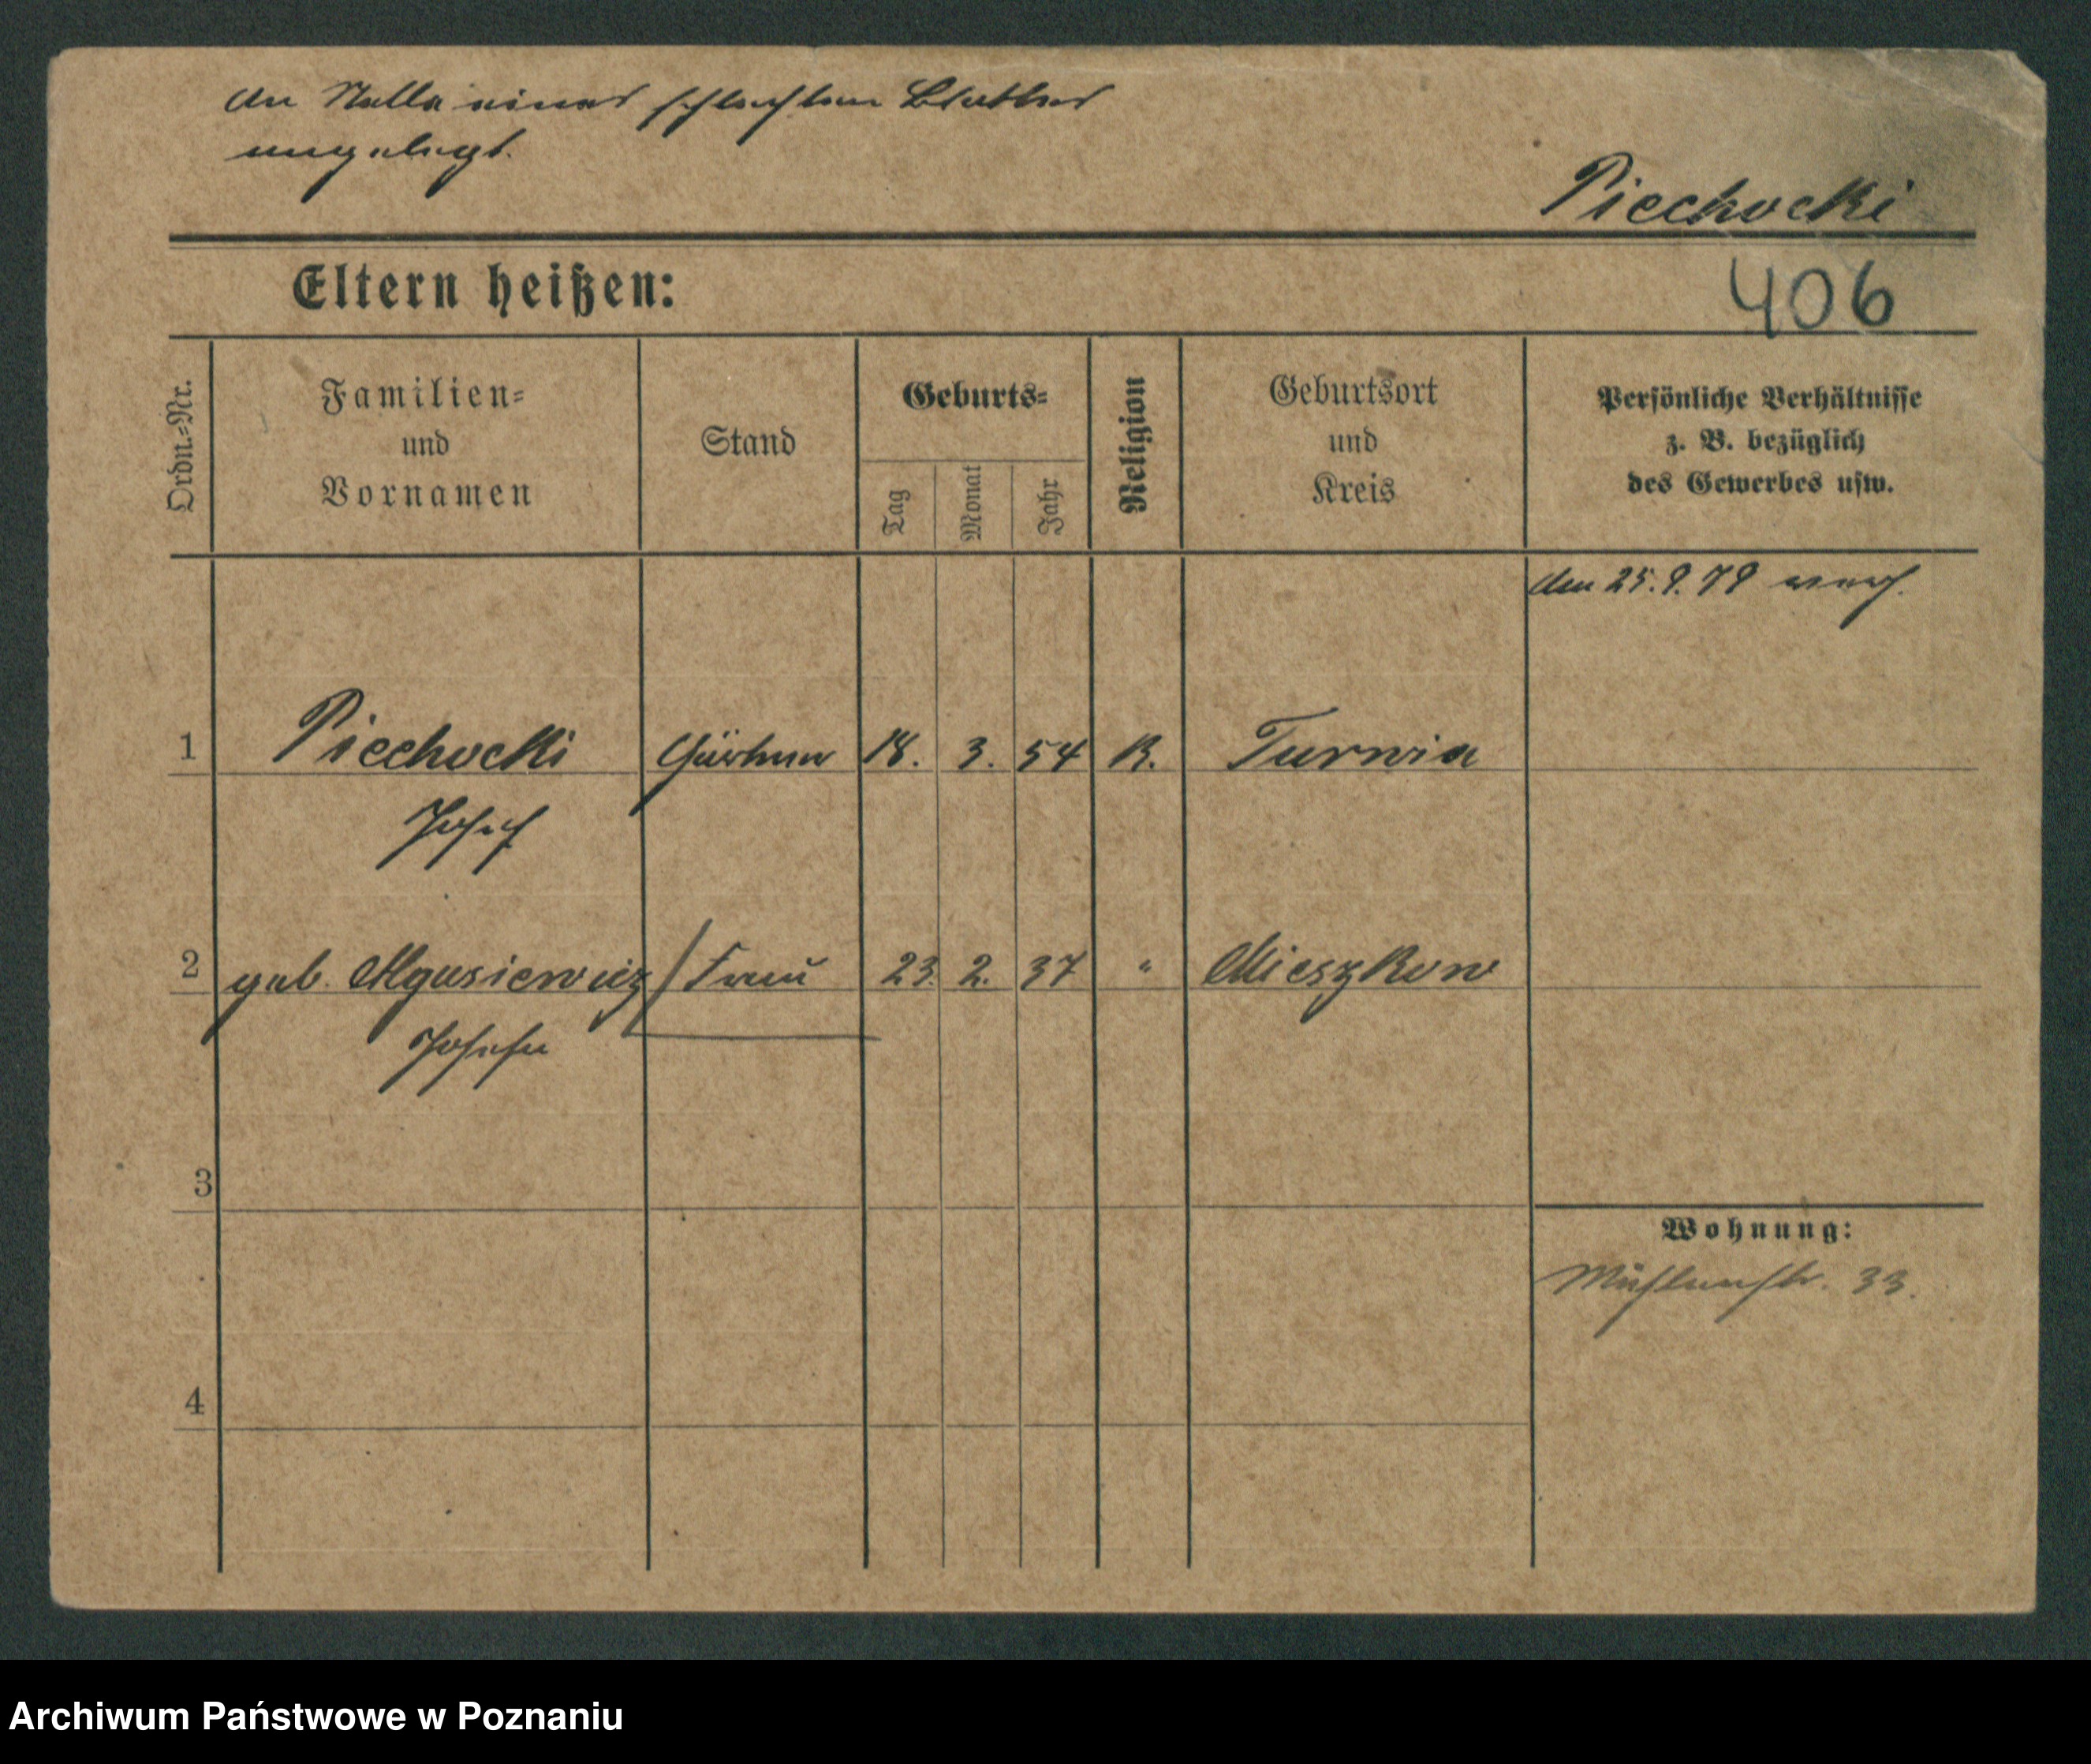 An Stelle eines schlechten Blattes
angelegt.
Piechocki
Eltern heißen:
406
Ordn.=Nr.
Familien=
und
Vornamen
Stand
Geburts=
Tag
Monat
Jahr
Religion
Geburtsort
und
Kreis
Persönliche Verhältnisse
z. B. bezüglich
des Gewerbes usw.
den 25. 9. 79
1 Piechocki Gärtner 18. 3. 54 K. Turwia
Josef
2 geb. Mgusiewicz / Frau 23. 2. 37 " Mieszkow
Josefa
3
Wohnung:
Mühlenstr. 33.
4
Archiwum Państwowe w Poznaniu